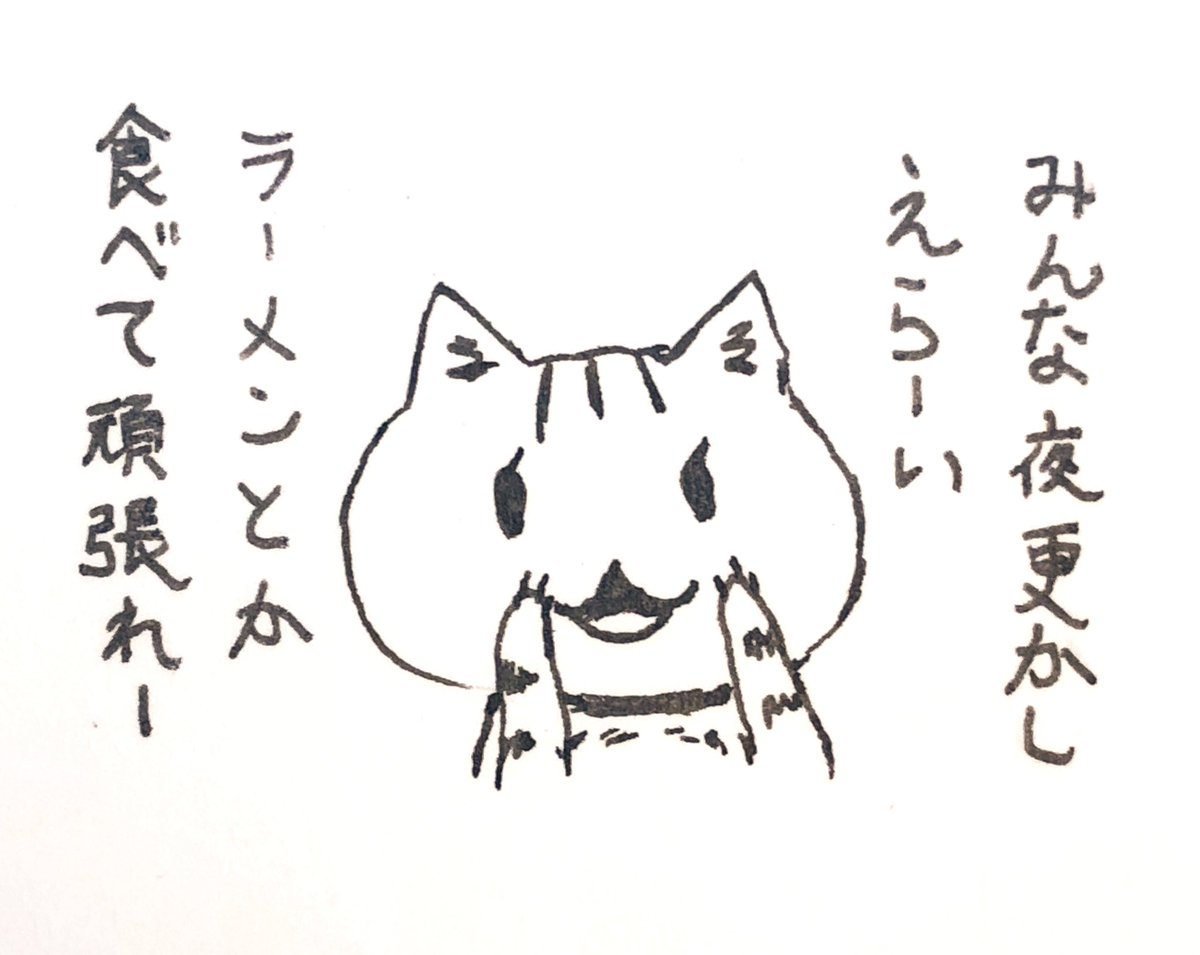 みんな夜更かし
えらーい
ラーメンとか
食べて頑張れー